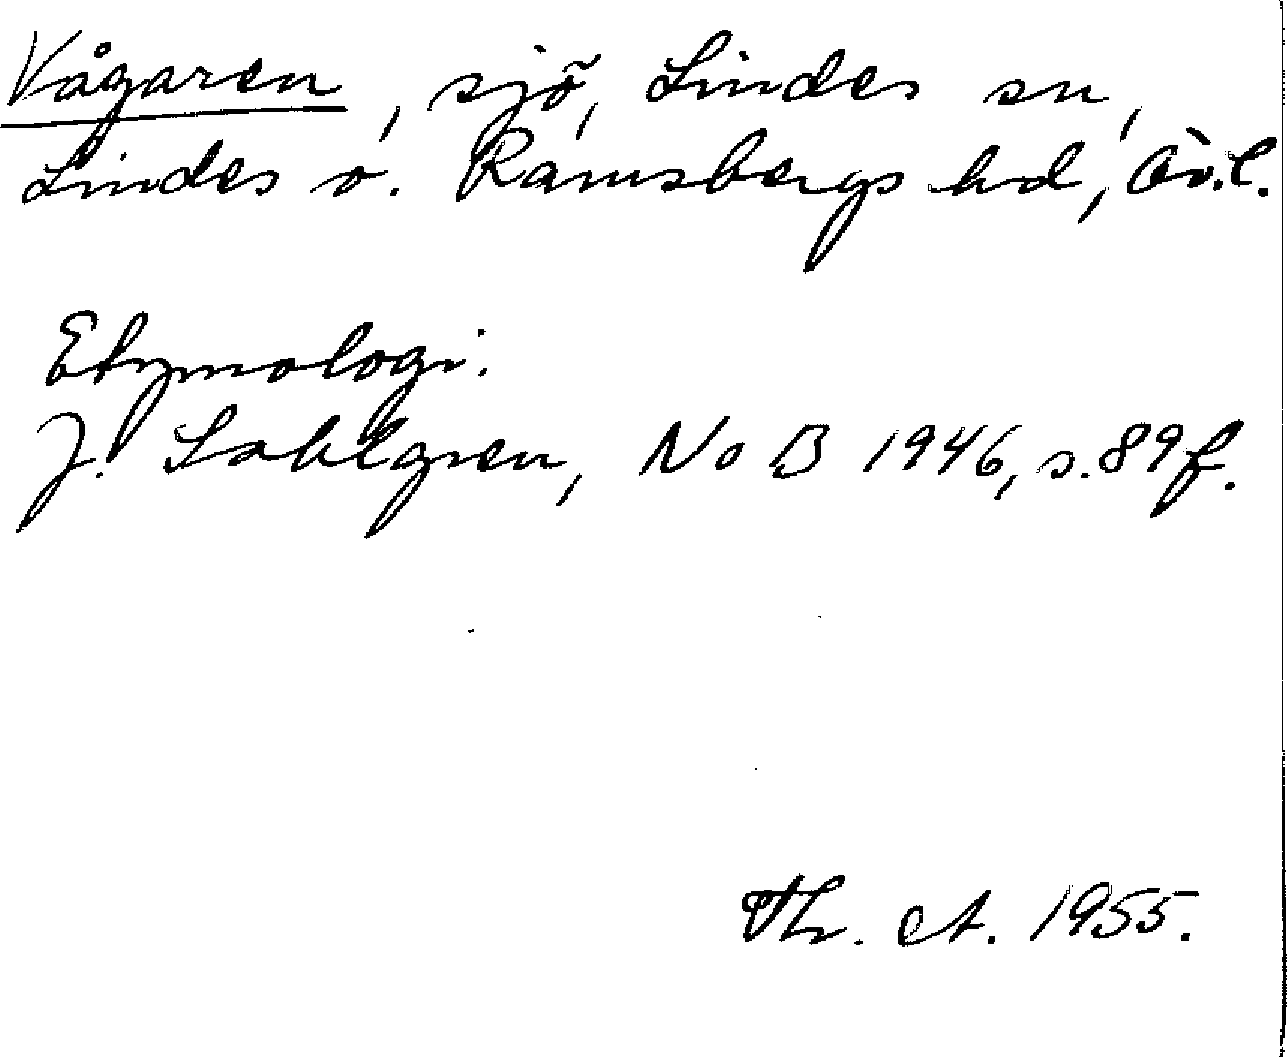 Vågaren, sjö, Lindes sn,
Lindes o. Ramsbergs hd, Ör.l.
Etymologi.
J. Sahlgren, NoB 1946, s. 89 f.
Thr. A. 1955.